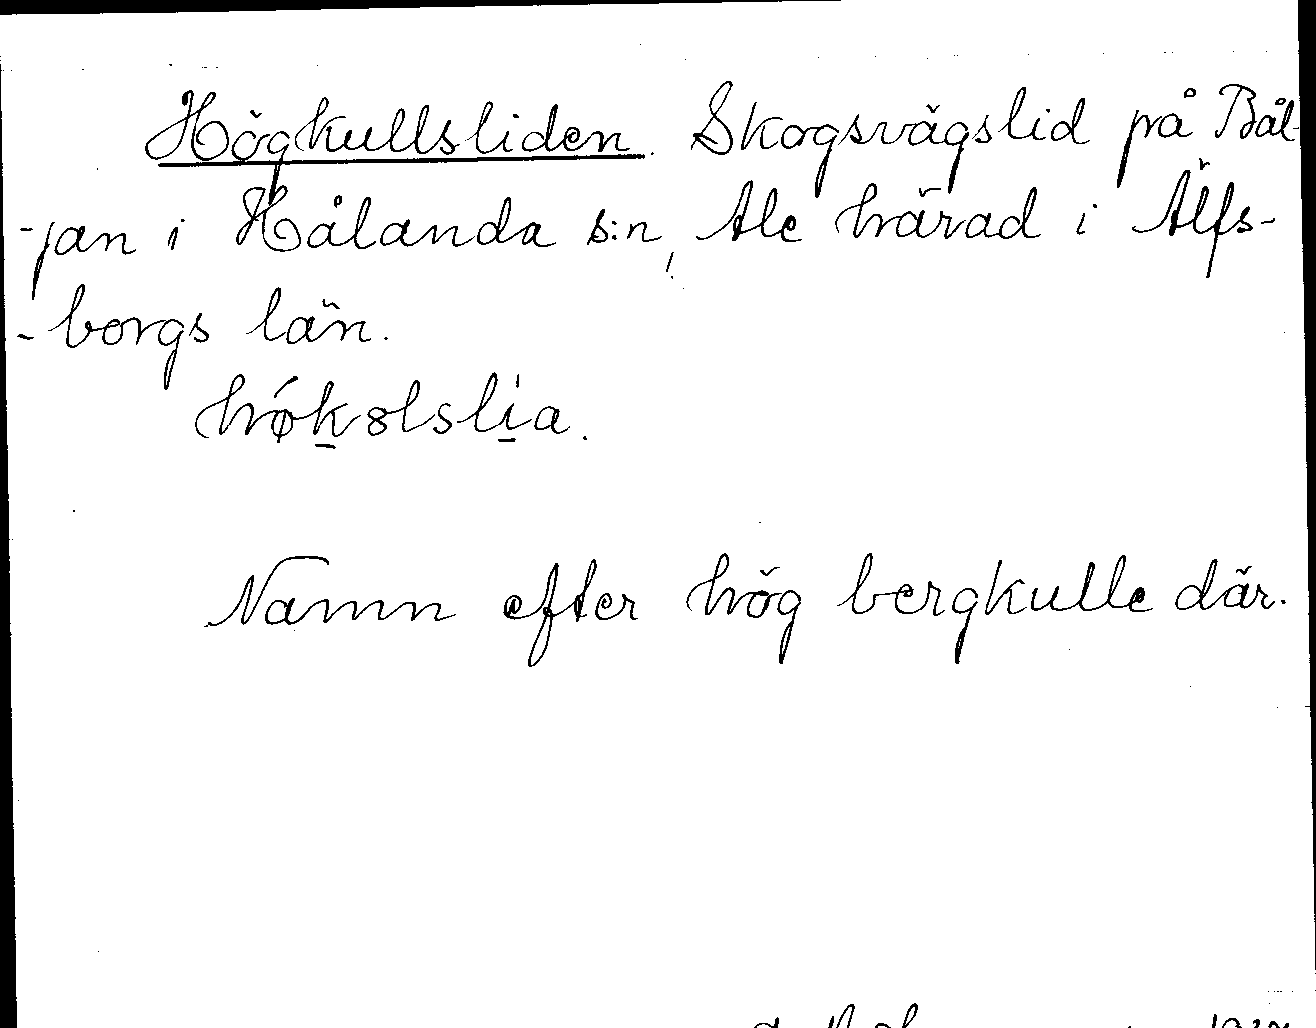 Högkullsliden. Skogsvägslid på Bål-
-jan i Hålanda s:n, Ale härad i Älfs-
-borgs län.
Namn efter hög bergkulle där.